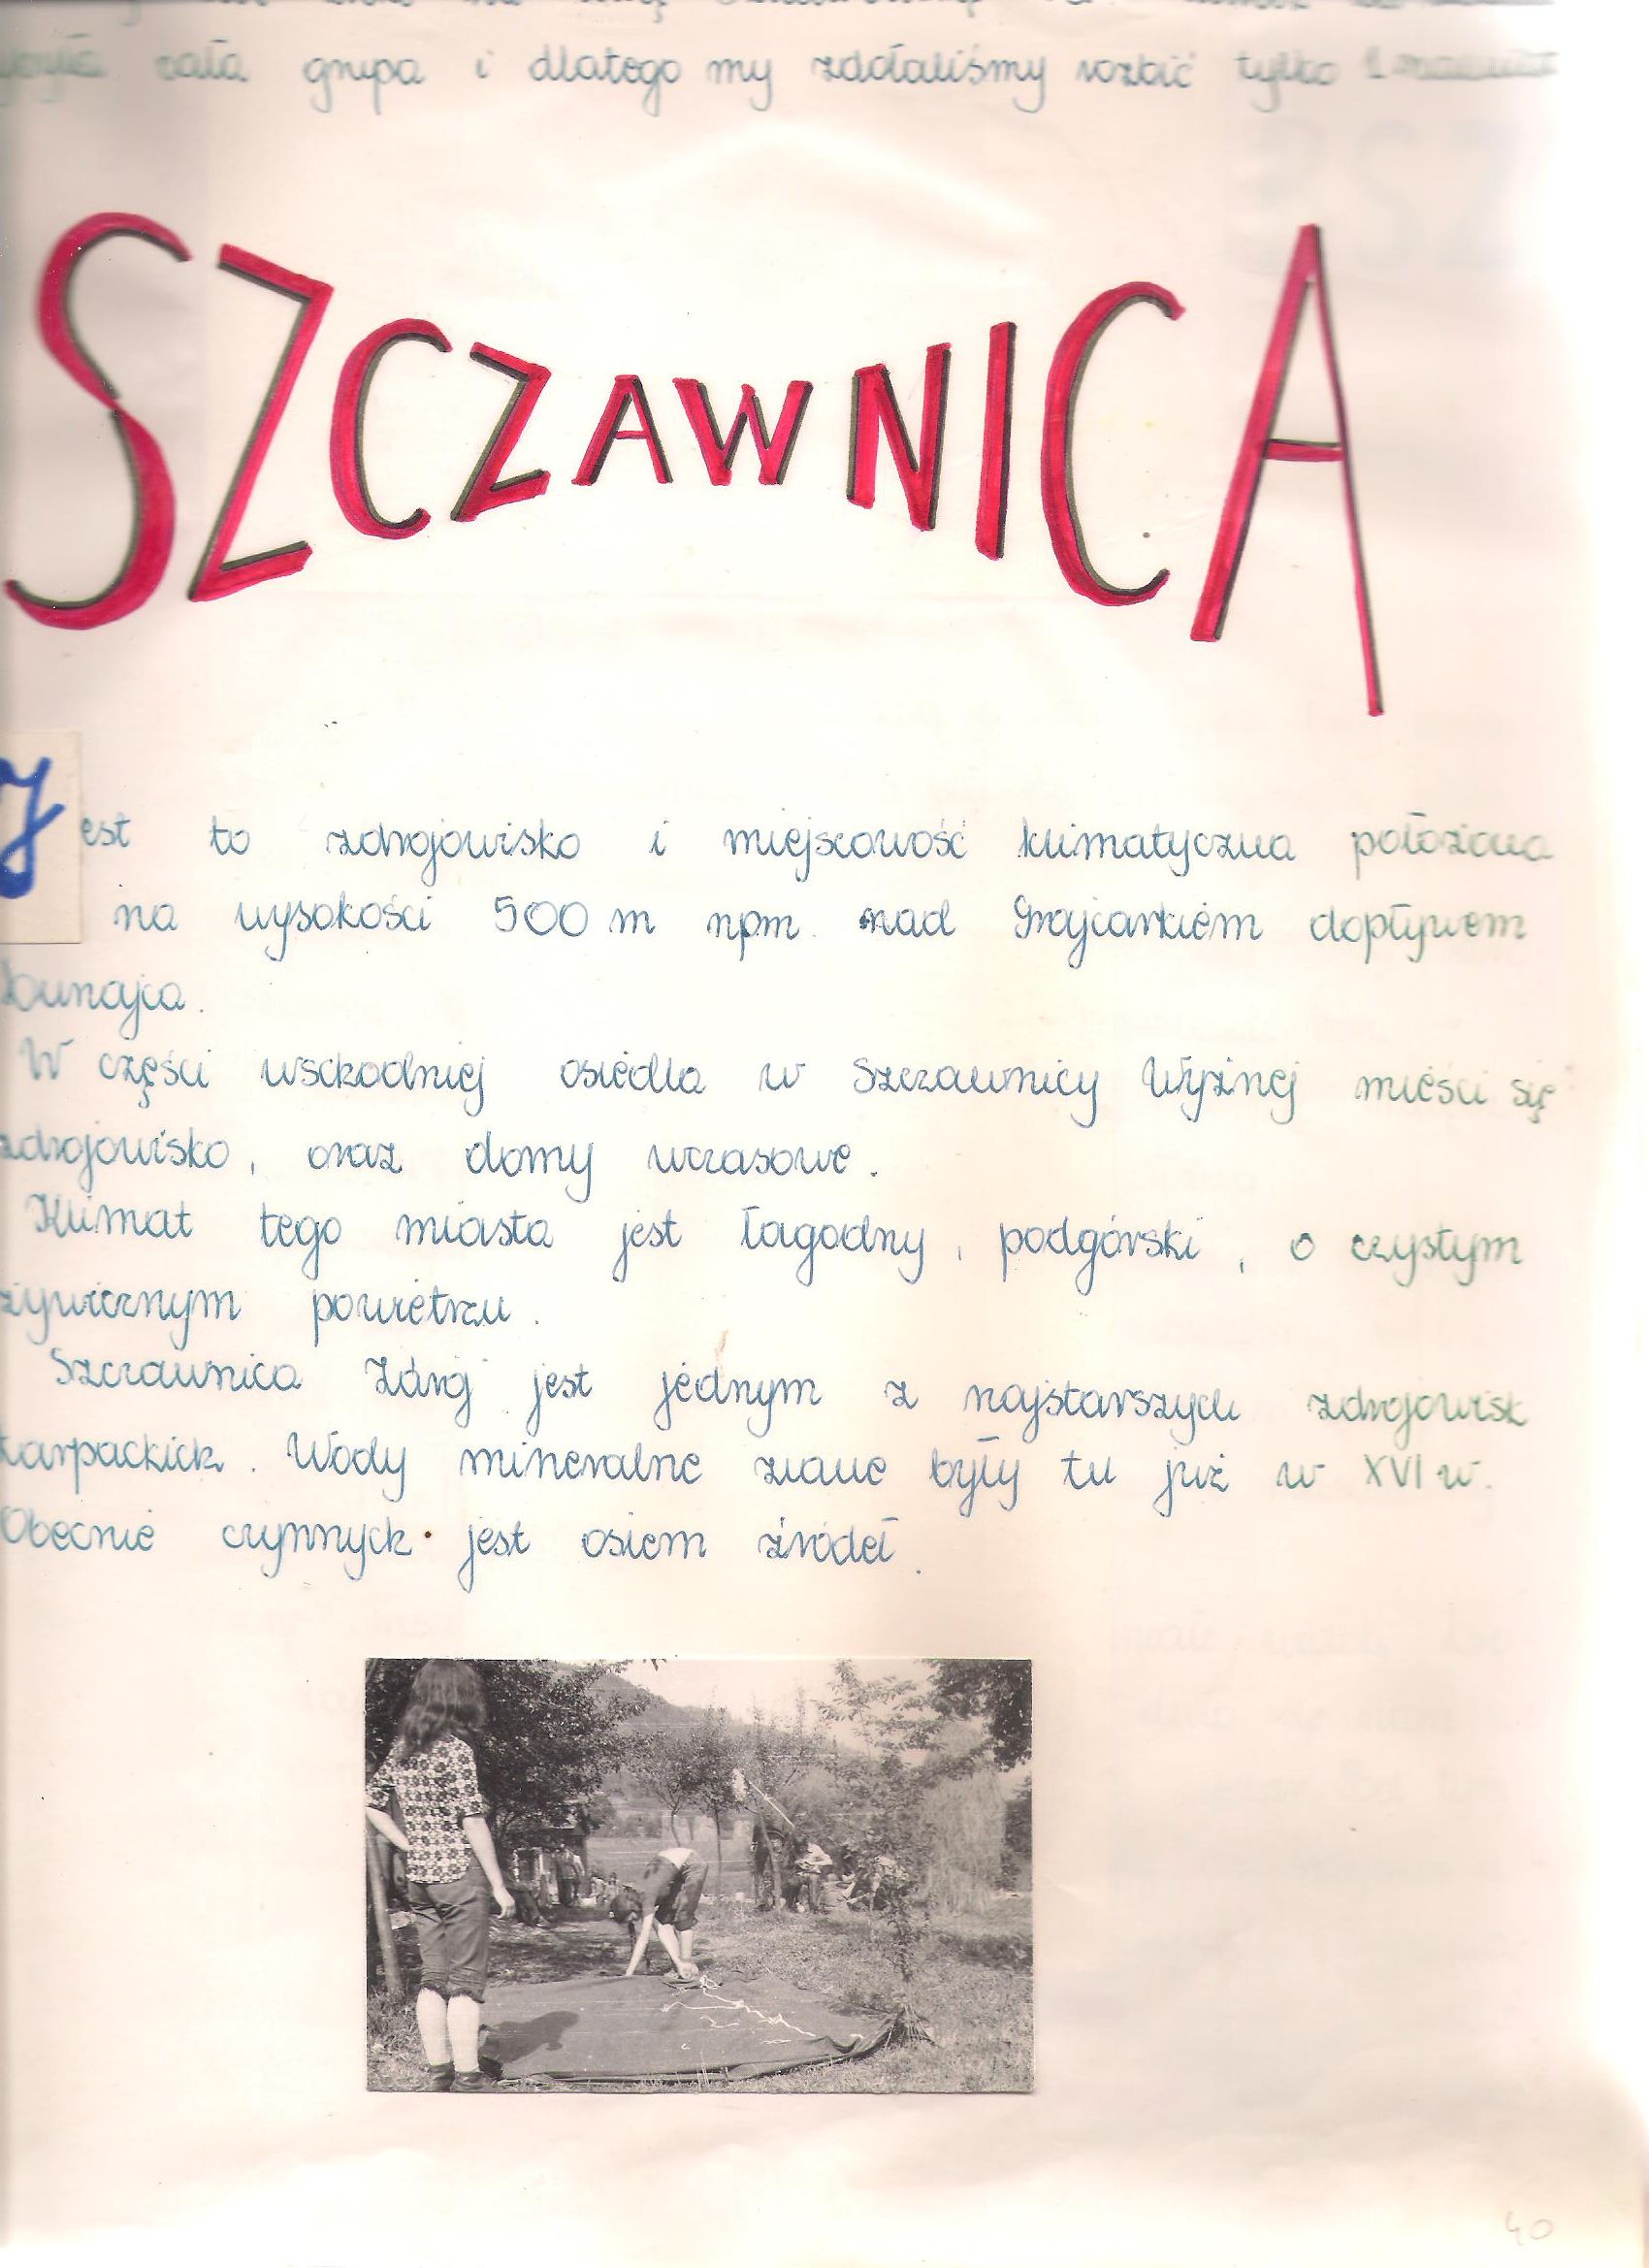 cała grupa i dlatego my zdołaliśmy rozbić tylko 1
SZCZAWNICA
Jest to zdrojowisko i miejscowość klimatyczna położona
na wysokości 500 m npm. nad Grajcarkiem dopływem
Dunajca.
W części wschodniej osiedla w Szczawnicy Wyżnej mieści się
zdrojowisko, oraz domy wczasowe.
Klimat tego miasta jest łagodny, podgórski, o czystym
żywicznym powietrzu.
Szczawnica Zdrój jest jednym z najstarszych zdrojowisk
karpackich. Wody mineralne znane były tu już w XVI w.
Obecnie czynnych jest osiem źródeł.
40